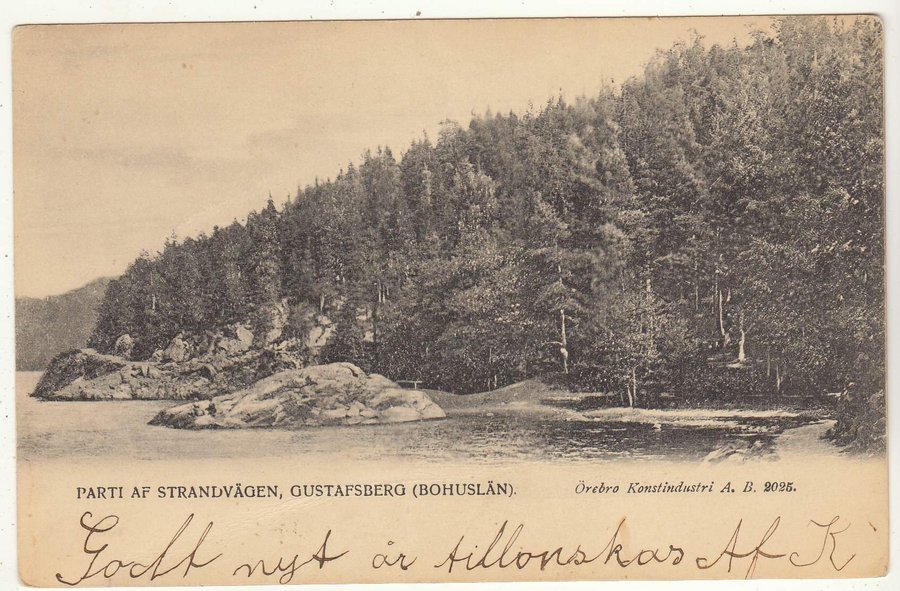 PARTI AF STRANDVÄGEN, GUSTAFSBERG (BOHUSLÄN). Örebro Konstindustri A. B. 2025.
Godt nytt år tillönskas Af K